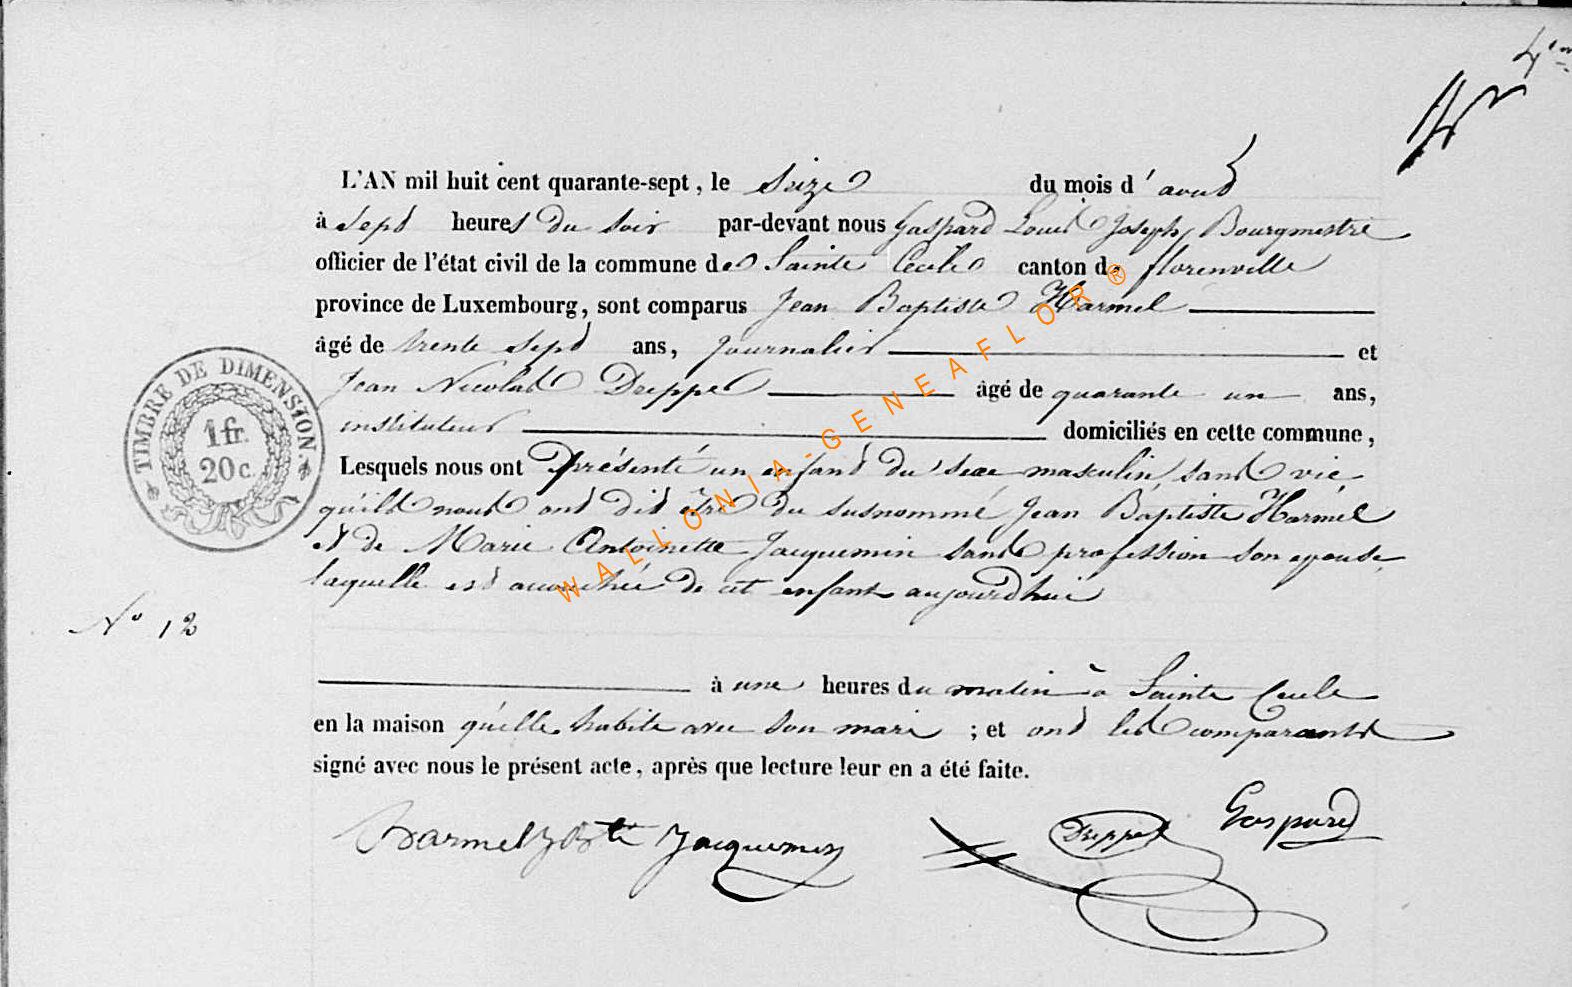 L'AN mil huit cent quarante-sept, le Seize du mois d'aout
à Sept heures du soir par-devant nous Gaspard Louis Joseph, Bourgmestre
officier de l'état civil de la commune de Sainte Cecile canton de florenville
province de Luxembourg, sont comparus Jean Baptiste Harmel
âgé de trente sept ans, journalier et
Jean Nicolas Dreppe âgé de quarante un ans,
instituteur domiciliés en cette commune,
TIMBRE DE DIMENSION.
1 fr.
20 c.
Lesquels nous ont présenté un enfant du sexe masculin sans vie
qu'ils nous ont dit être du susnommé Jean Baptiste Harmel
et de Marie Antoinette Jacquemin sans profession son epouse,
laquelle est accouchée de cet enfant aujourdhui
N° 12
à une heures du matin à Sainte Cecile
en la maison qu'elle habite avec son mari ; et ont les comparants
signé avec nous le présent acte, après que lecture leur en a été faite.
Harmel J Bte Jacquemin Dreppe Gaspard
WALLONIA-GENEAFLOR®